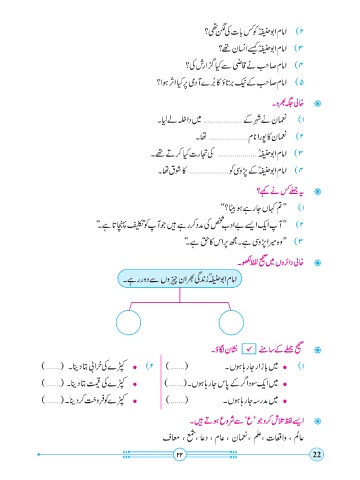 ۲) امام ابو حنیفہؒ کو کس بات کی لگن تھی؟
۳) امام ابو حنیفہؒ کیسے انسان تھے؟
۴) امام صاحب نے قاضی سے کیا گزارش کی؟
۵) امام صاحب کے نیک برتاؤ کا بُرے آدمی پر کیا اثر ہوا؟
خالی جگہ بھرو۔
۱) نعمان نے شہر کے .................... میں داخلہ لے لیا۔
۲) نعمان کا پورا نام .................... تھا۔
۳) امام ابو حنیفہؒ .................... کی تجارت کیا کرتے تھے۔
۴) امام ابو حنیفہؒ کے پڑوسی کو .................... کا شوق تھا۔
یہ جملے کس نے کہے؟
۱) ”تم کہاں جا رہے ہو بیٹا؟“
۲) ”آپ ایک ایسے بے ادب شخص کی مدد کر رہے ہیں جو آپ کو تکلیف پہنچاتا ہے۔“
۳) ”وہ میرا پڑوسی ہے۔ مجھ پر اس کا حق ہے۔“
خالی دائروں میں صحیح لفظ لکھو۔
امام ابو حنیفہؒ زندگی بھر ان چیزوں سے دور رہے۔
صحیح جملے کے سامنے ✓ نشان لگاؤ۔
۱) • میں بازار جا رہا ہوں۔ (.......) ۲) • کپڑے کی خرابی بتا دینا۔ (.......)
• میں ایک سوداگر کے پاس جا رہا ہوں۔ (.......) • کپڑے کی قیمت بتا دینا۔ (.......)
• میں مدرسہ جا رہا ہوں۔ (.......) • کپڑے کو فروخت کر دینا۔ (.......)
ایسے لفظ تلاش کرو جو ’ع‘ سے شروع ہوتے ہیں۔
عالم ، واقعات ، علم ، نعمان ، عام ، دعا ، شمع ، معاف
۲۲
22